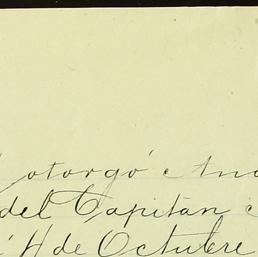 otorgó
del Capitan
4 de Octubre